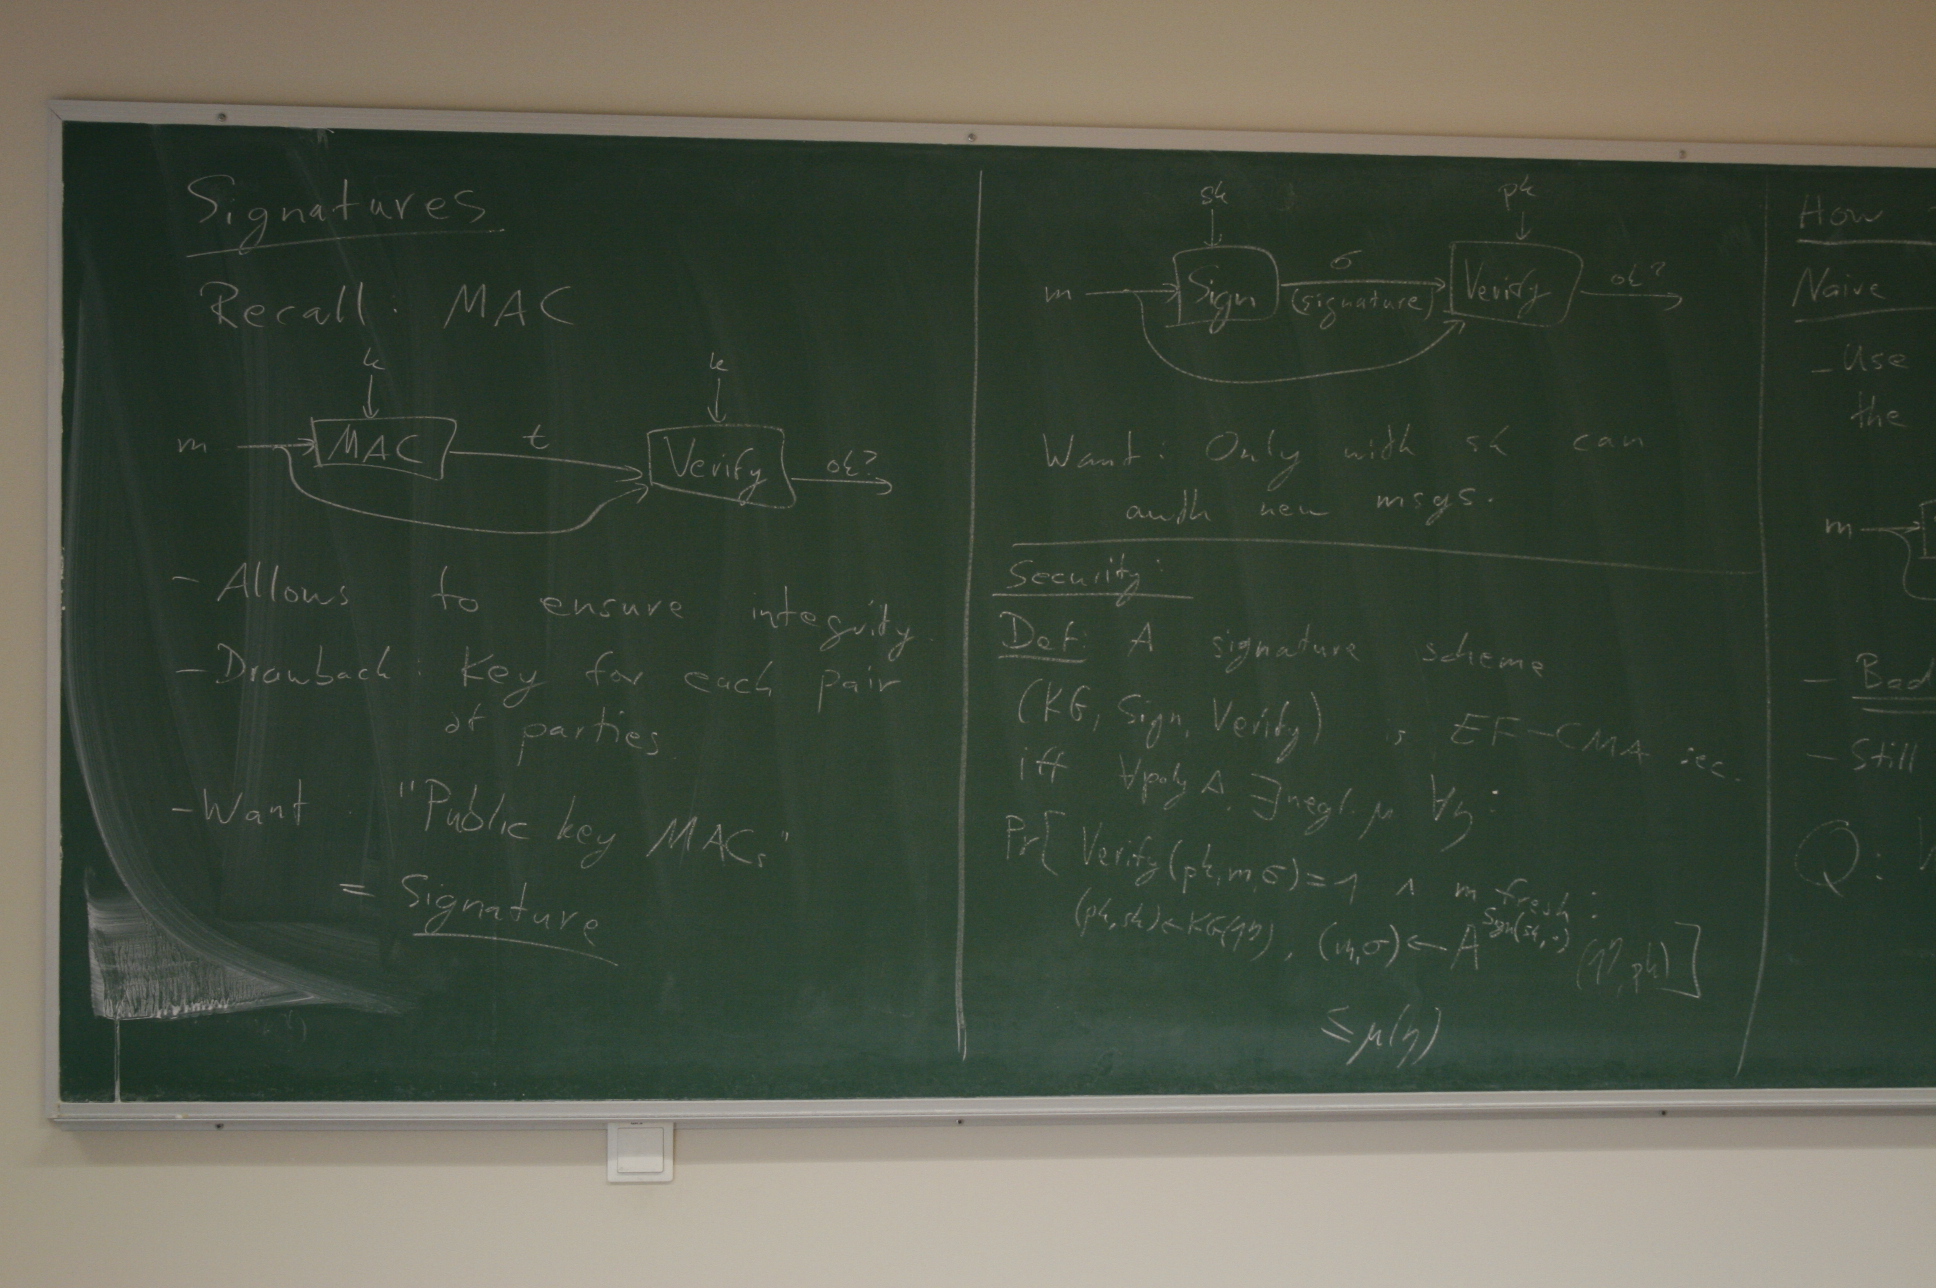 Signatures
Recall: MAC
k k
m MAC t Verify ok?
- Allows to ensure integrity.
- Drawback: Key for each pair
of parties.
- Want: "Public key MACs"
= Signature
sk pk
m Sign σ (signature) Verify ok?
Want: Only with sk can
auth new msgs.
Security:
Def: A signature scheme
(KG, Sign, Verify) is EF-CMA sec.
iff ∀poly A ∃negl. μ ∀η:
Pr[Verify(pk,m,σ)=1 ∧ m fresh:
(pk,sk)←KG(1^η), (m,σ)←A^Sign(sk,·)(1^η,pk)]
≤ μ(η)
How
Naive
- Use
the
m
- Bad
- Still
Q: